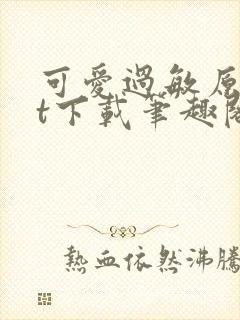 可愛過敏原
t下載筆趣閣
熱血依然沸騰